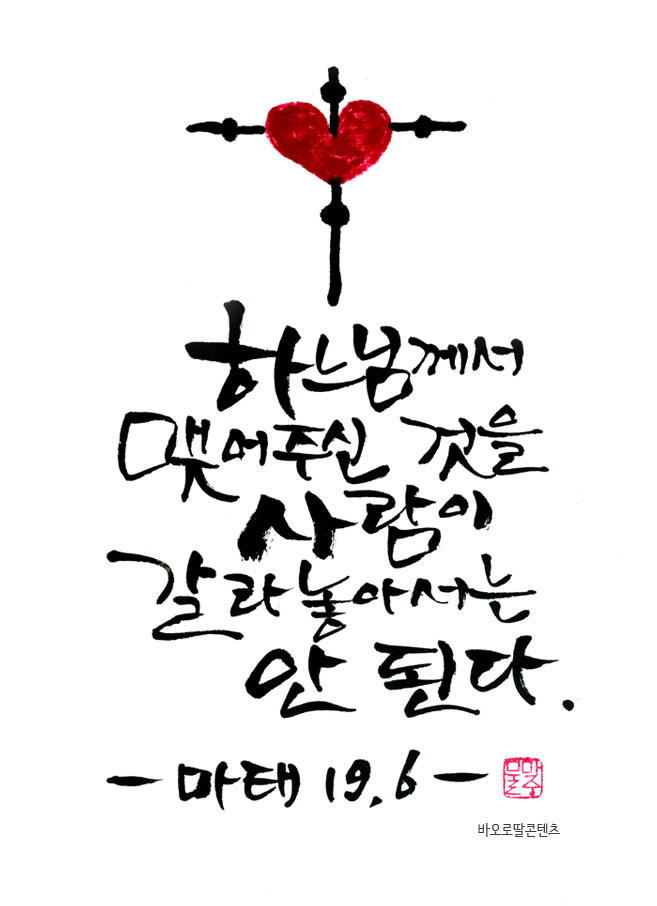 하느님께서
맺어주신 것을
사람이
갈라놓아서는
안 된다.
- 마태 19,6 -
바오로딸콘텐츠